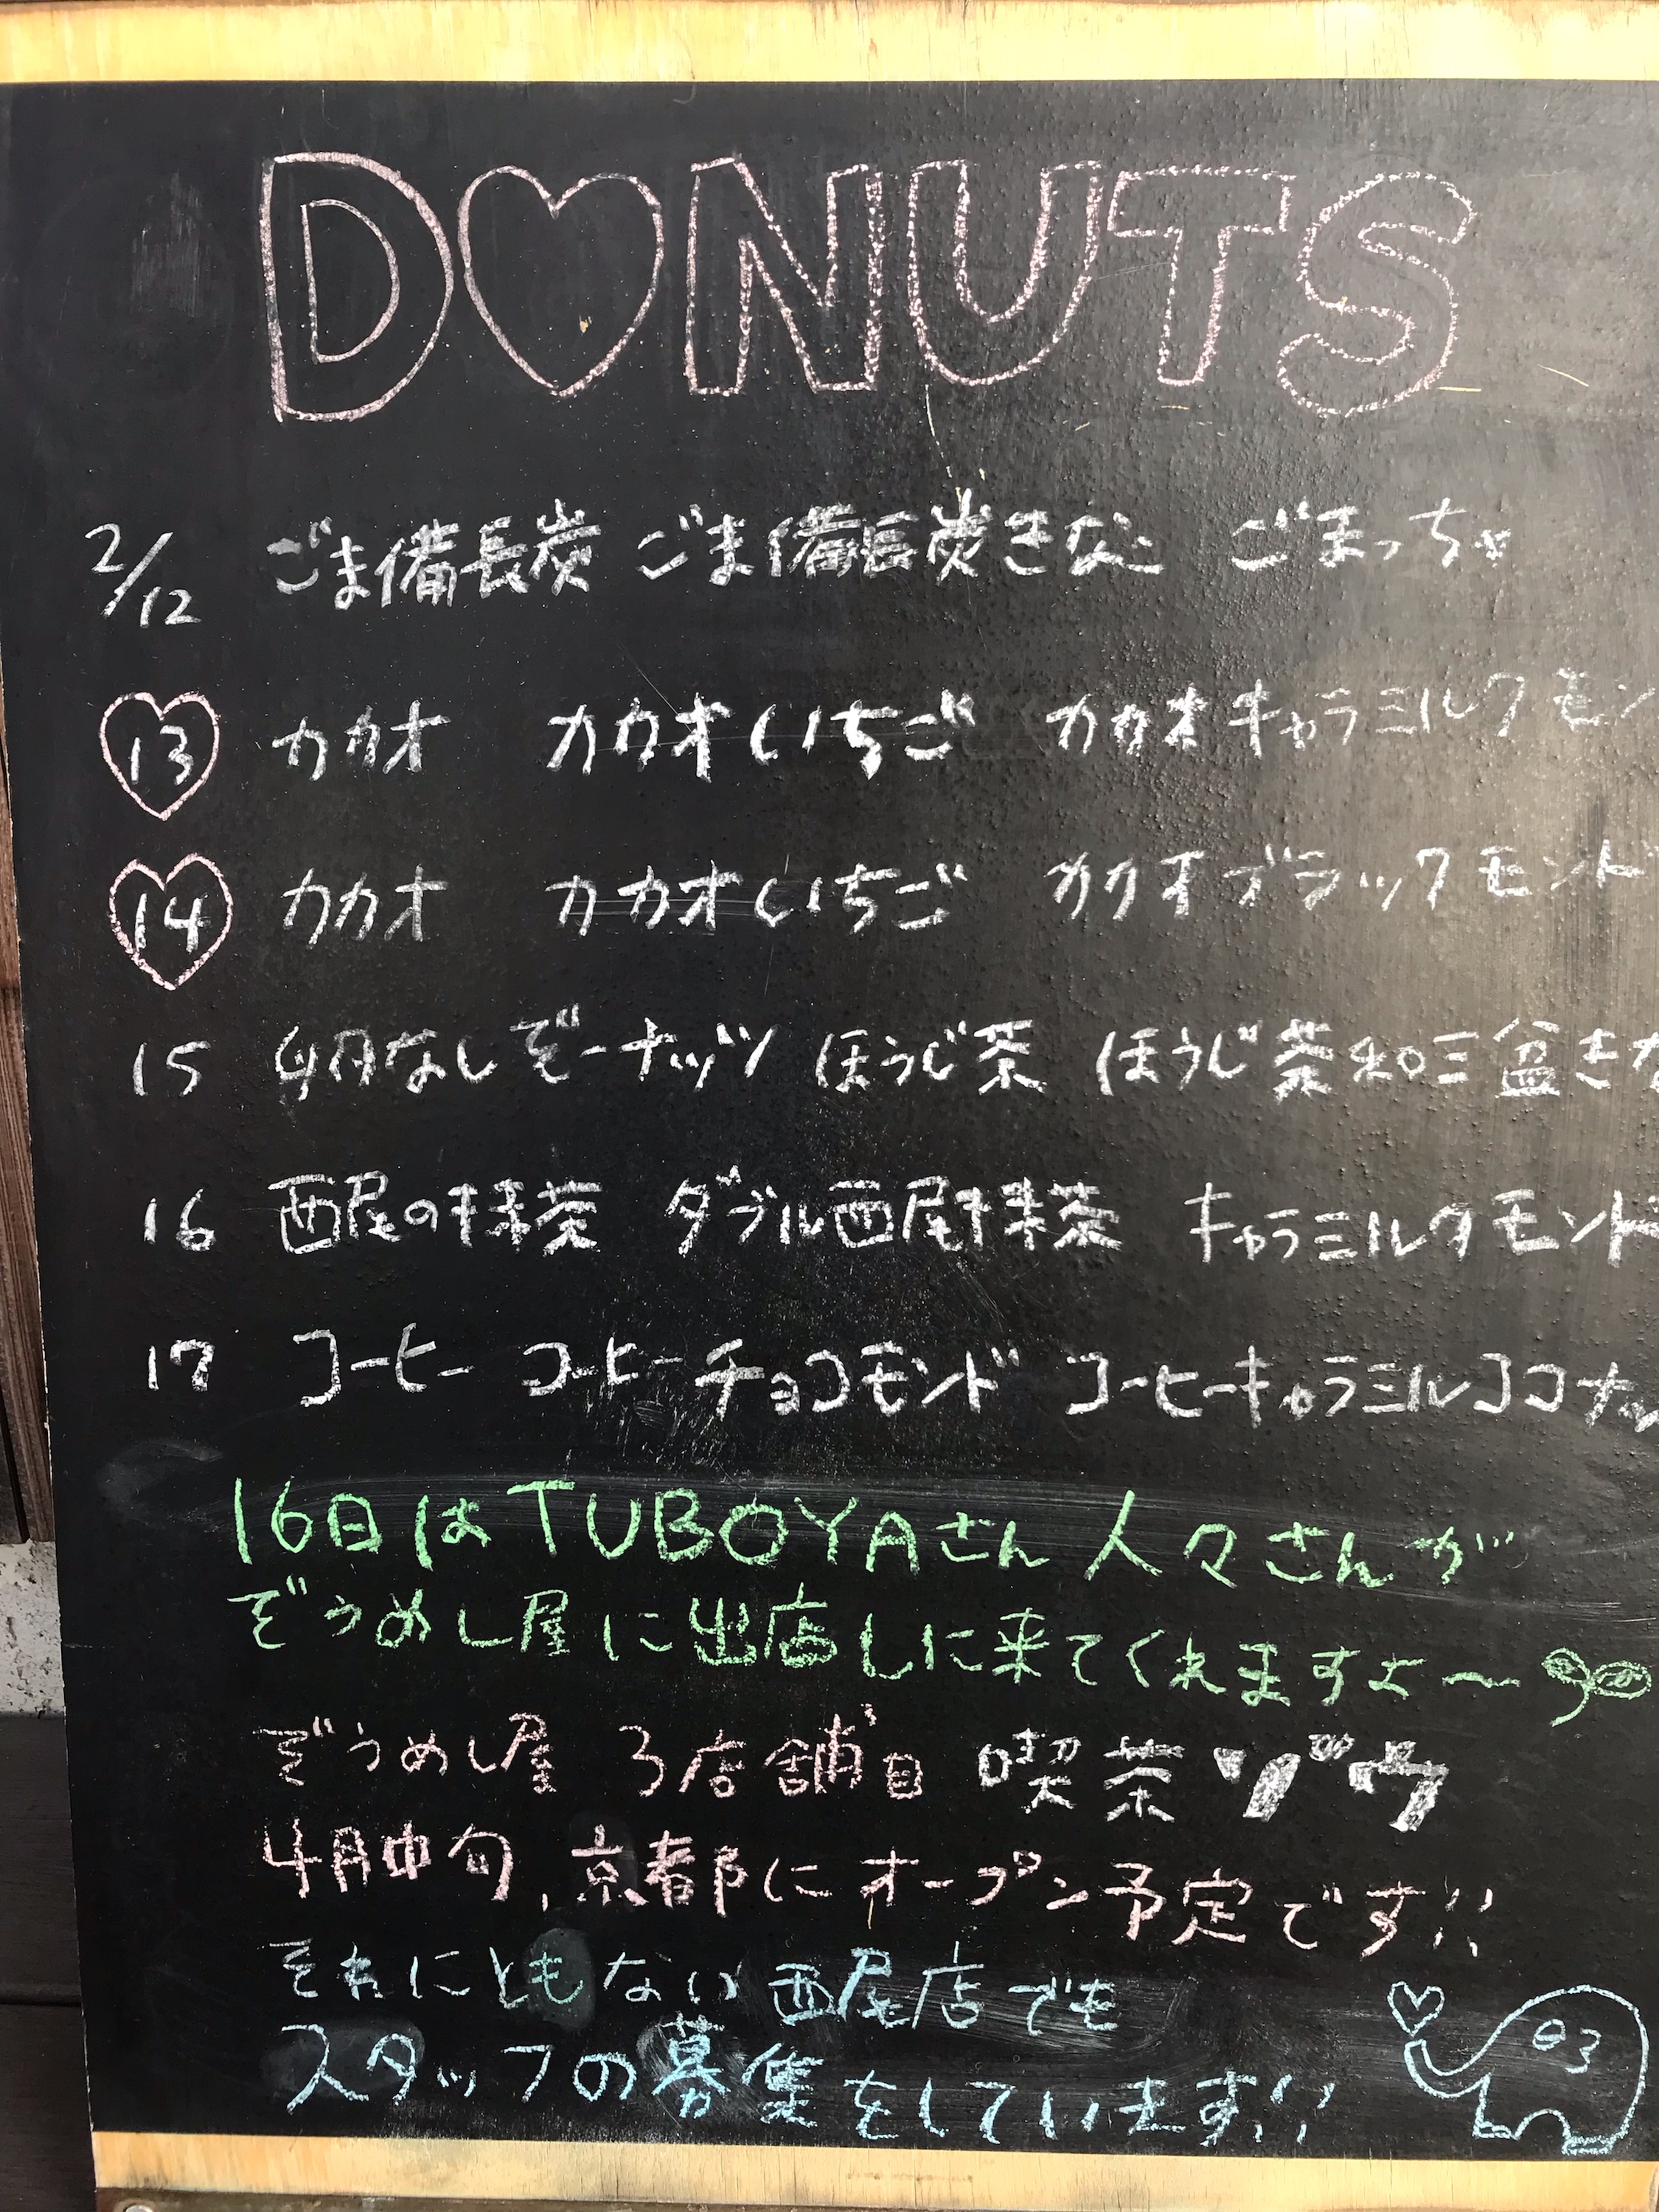 DONUTS
2/12 ごま備長炭 ごま備長炭きなこ ごまっちゃ
13 カカオ カカオいちご カカオキャラミルクモン
14 カカオ カカオいちご カカオブラックモンド
15 卵なしぞーナッツ ほうじ茶 ほうじ茶和三盆きな
16 西尾の抹茶 ダブル西尾抹茶 キャラミルクモンド
17 コーヒー コーヒーチョコモンド コーヒーキャラミルココナッ
16日はTUBOYAさん 人々さんが
ぞうめし屋に出店しに来てくれますよ〜
ぞうめし屋 3店舗目 喫茶ゾウ
4月中旬、京都にオープン予定です!!
それにともない 西尾店でも
スタッフの募集をしています!!